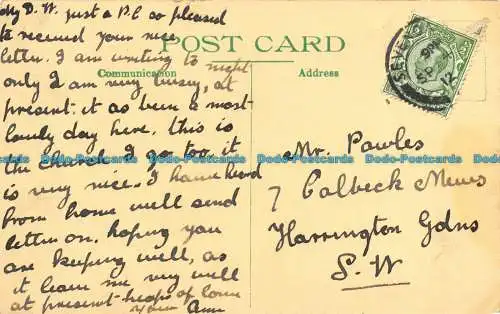 My D. W. just a P.C so pleased
to received your nice
letter. I am writing to night
only I am very busy, at
present. it as been a most
lovely day here. this is
the church I go too, it
is very nice. I have heard
from home will send
letter on. hoping you
are keeping well, as
it leave me very well
at present heaps of love
your Ann
POST CARD
Communication
Address
SEVE
SP
12
Mr. Powles
7 Colbeck Mews
Harrington Gdns
S. W
Dodo-Postcards Dodo-Postcards Dodo-Postcards Dodo-Postcards Dodo-Postcards